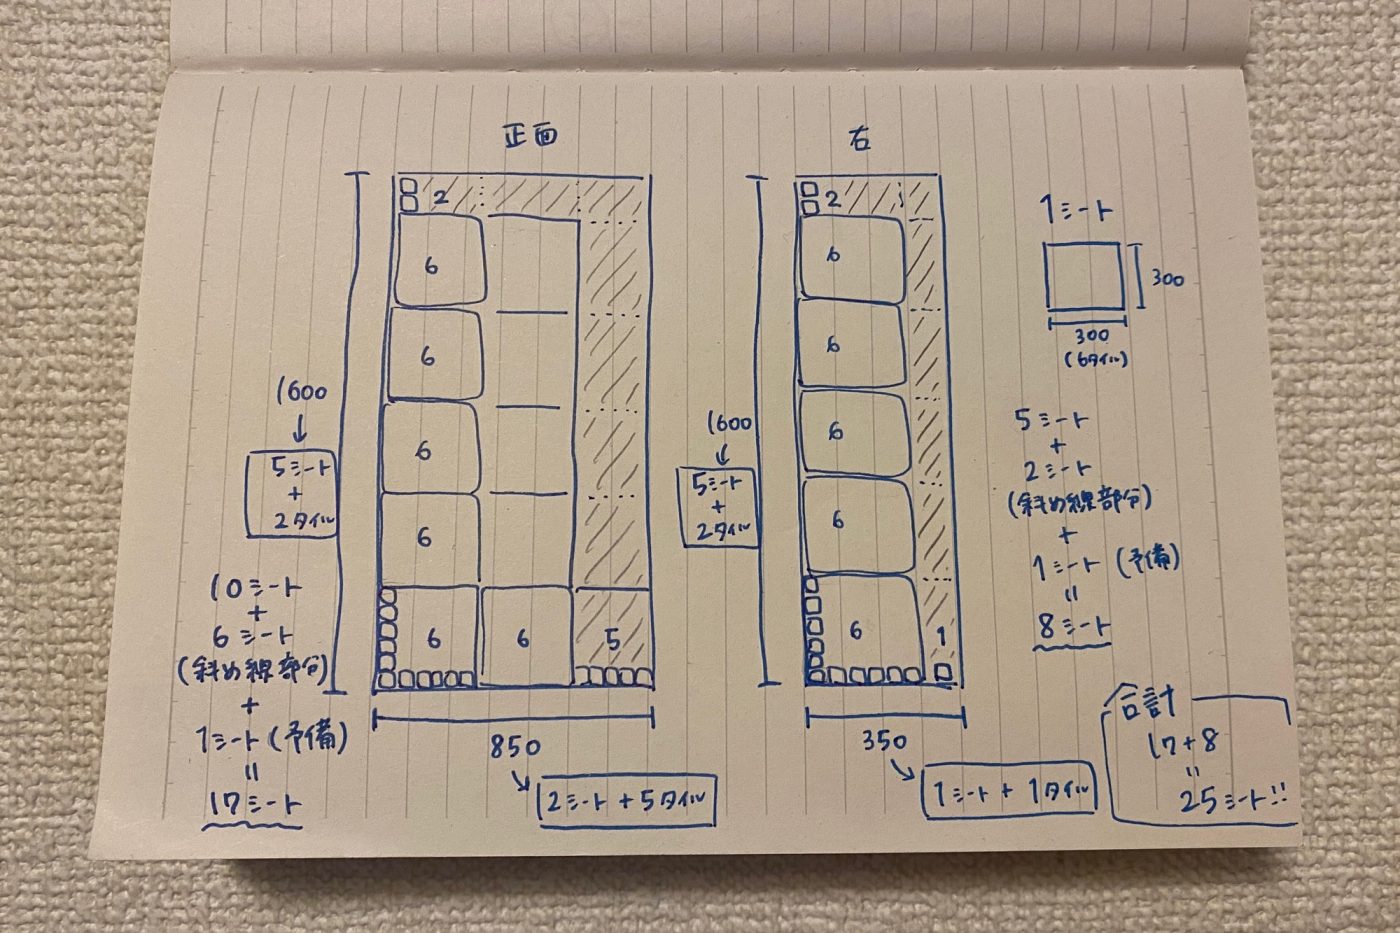 正面
2
6
6
6
6
6
6
5
1600
↓
5シート
+
2タイル
10シート
+
6シート
(斜め線部分)
+
1シート(予備)
=
17シート
850
2シート+5タイル
右
2
6
6
6
6
6
1
1600
↓
5シート
+
2タイル
350
1シート+1タイル
1シート
300
300
(6タイル)
5シート
+
2シート
(斜め線部分)
+
1シート(予備)
=
8シート
合計
17+8
=
25シート!!